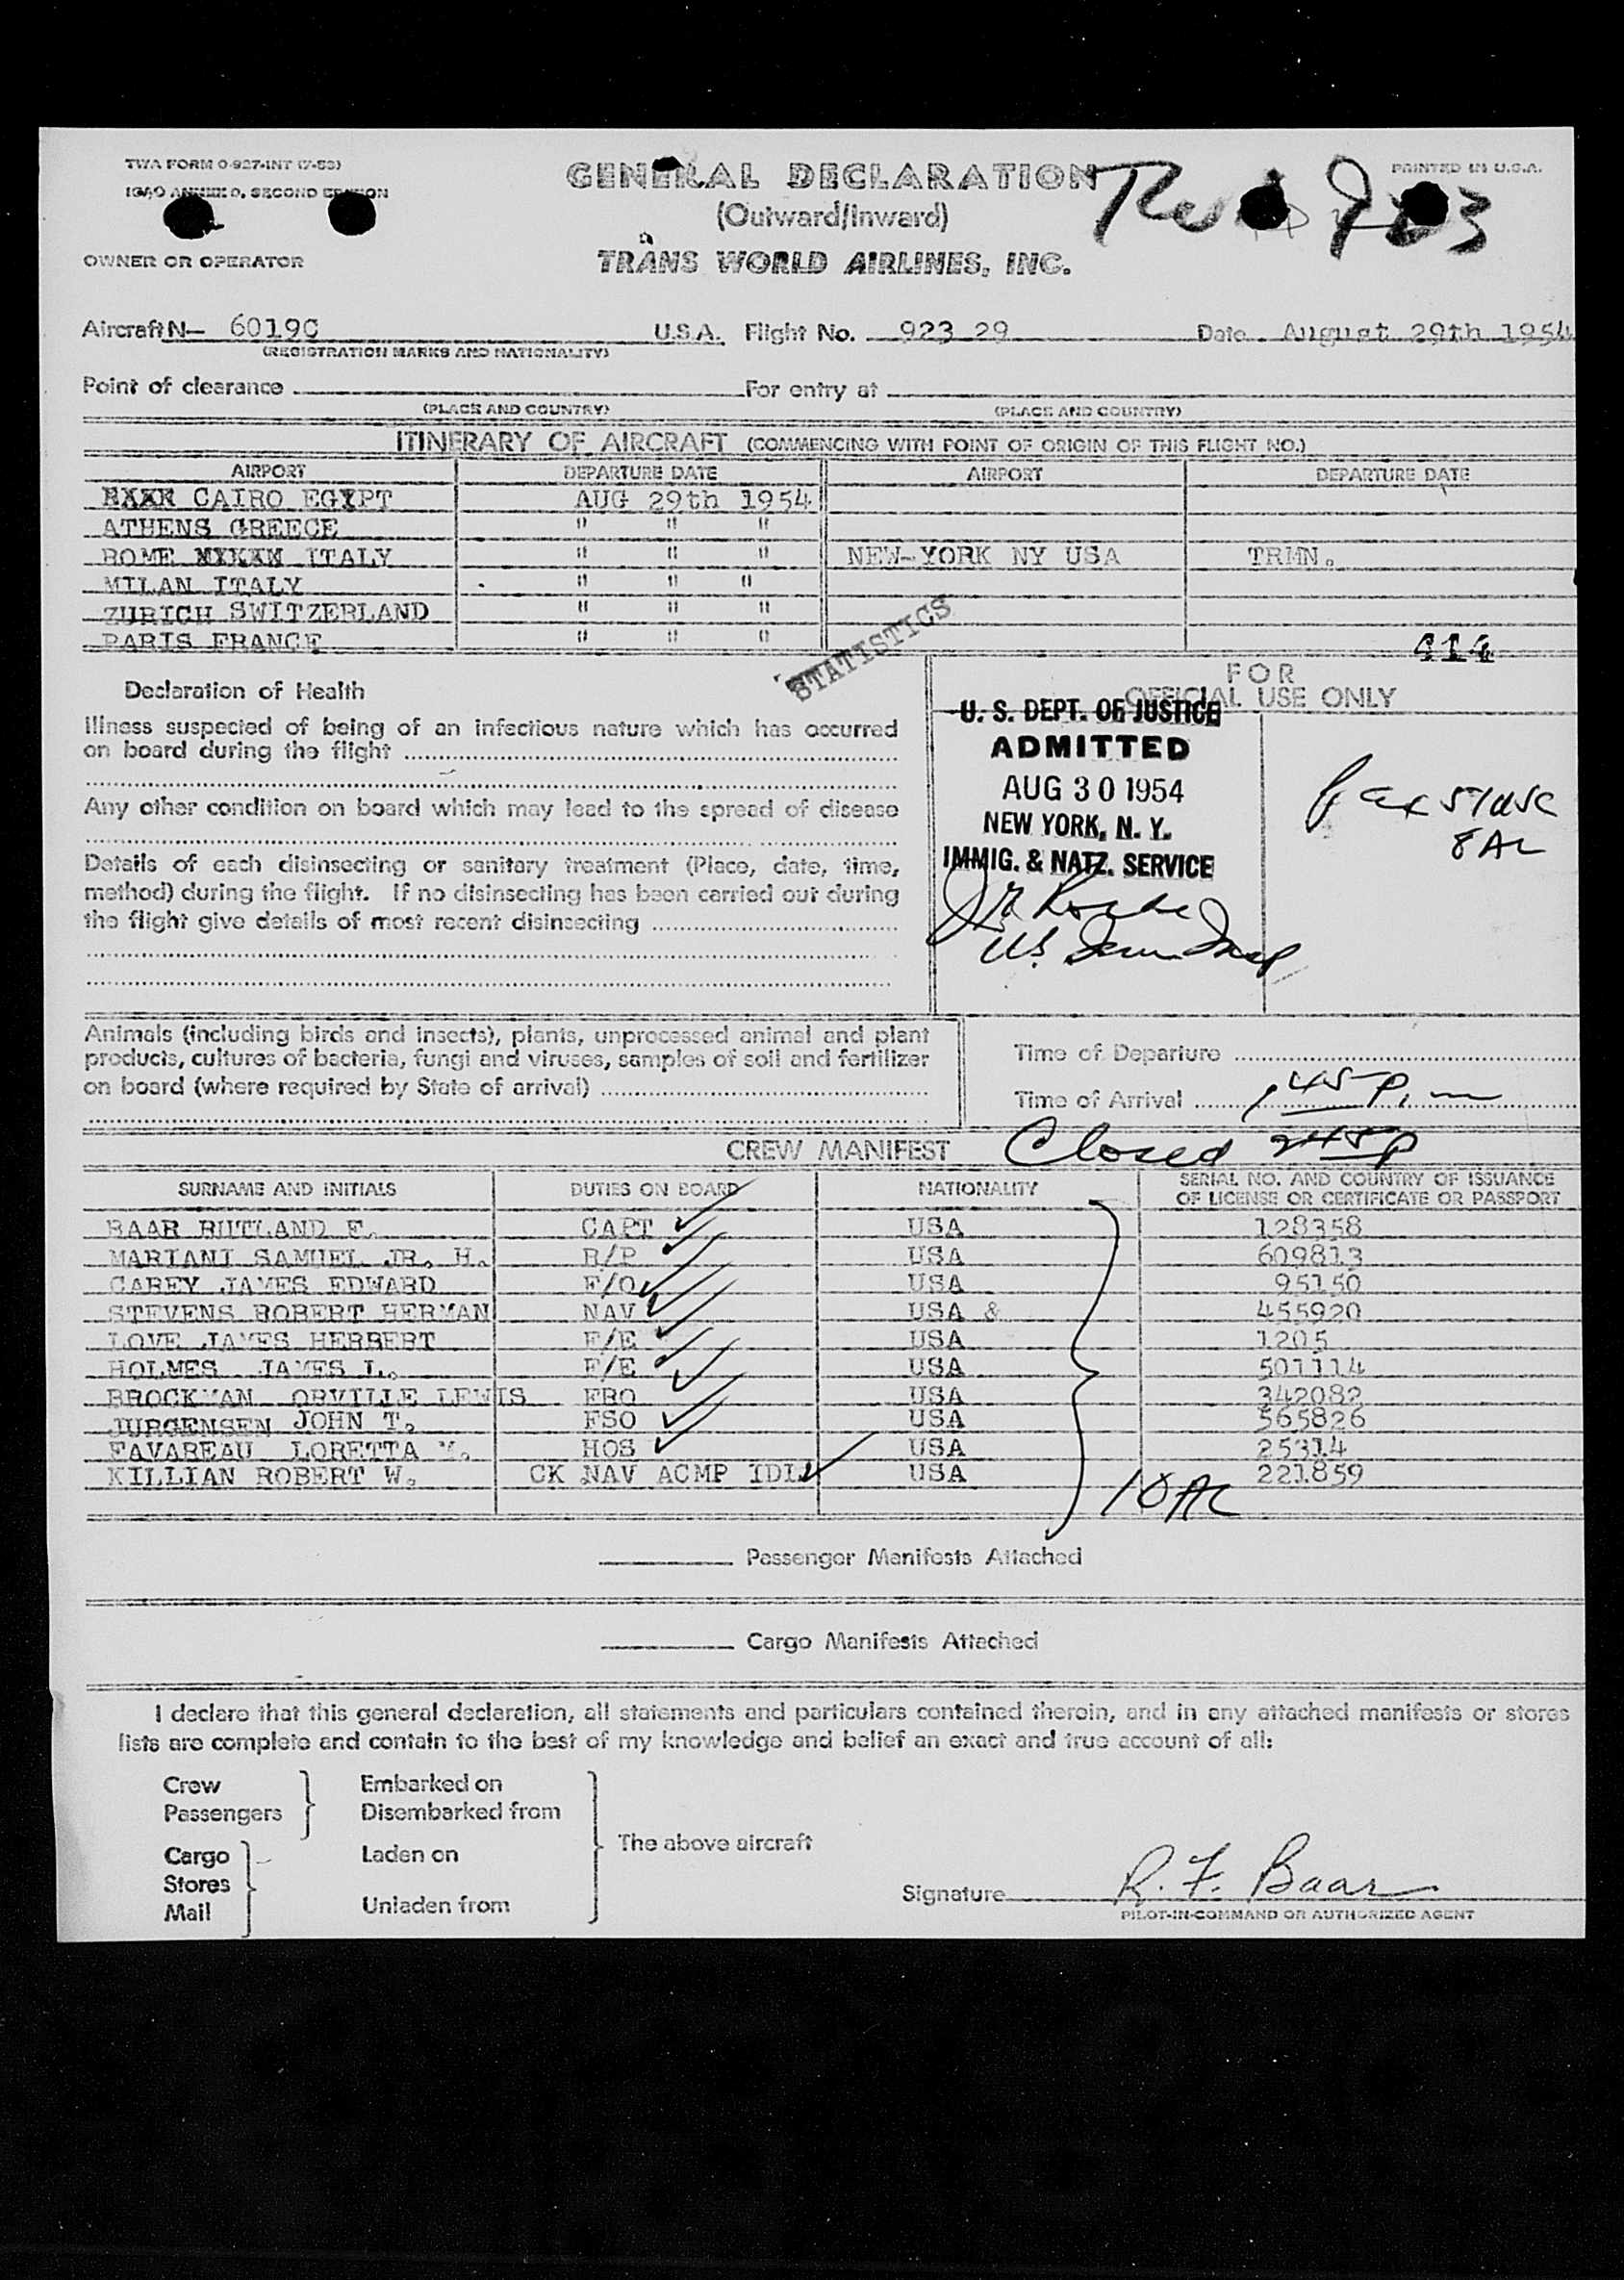 TWA FORM O-927-INT (7-53)
ICAO ANNEX 9, SECOND EDITION
PRINTED IN U.S.A.
GENERAL DECLARATION
(Outward/Inward)
OWNER OR OPERATOR
TRANS WORLD AIRLINES, INC.
Aircraft N— 6019C U.S.A. Flight No. 923 29 Date August 29th 1954
(REGISTRATION MARKS AND NATIONALITY)
Point of clearance For entry at
(PLACE AND COUNTRY) (PLACE AND COUNTRY)
ITINERARY OF AIRCRAFT (COMMENCING WITH POINT OF ORIGIN OF THIS FLIGHT NO.)
AIRPORT DEPARTURE DATE AIRPORT DEPARTURE DATE
CAIRO EGYPT AUG 29th 1954
ATHENS GREECE " " "
ROME ITALY " " " NEW-YORK NY USA TRMN.
MILAN ITALY " " "
ZURICH SWITZERLAND " " "
PARIS FRANCE " " "
414
STATISTICS
FOR
OFFICIAL USE ONLY
Declaration of Health
Illness suspected of being of an infectious nature which has occurred
on board during the flight
Any other condition on board which may lead to the spread of disease
Details of each disinsecting or sanitary treatment (Place, date, time,
method) during the flight. If no disinsecting has been carried out during
the flight give details of most recent disinsecting
U. S. DEPT. OF JUSTICE
ADMITTED
AUG 30 1954
NEW YORK, N. Y.
IMMIG. & NATZ. SERVICE
8 AL
Animals (including birds and insects), plants, unprocessed animal and plant
products, cultures of bacteria, fungi and viruses, samples of soil and fertilizer
on board (where required by State of arrival)
Time of Departure
Time of Arrival 145 P.m
CREW MANIFEST Closed 245p
SURNAME AND INITIALS DUTIES ON BOARD NATIONALITY SERIAL NO. AND COUNTRY OF ISSUANCE
OF LICENSE OR CERTIFICATE OR PASSPORT
BAAR RUTLAND F. CAPT USA 128358
MARIANI SAMUEL JR. H. R/P USA 609813
CAREY JAMES EDWARD F/O USA 95150
STEVENS ROBERT HERMAN NAV USA & 455920
LOVE JAMES HERBERT F/E USA 1205
HOLMES JAMES L. F/E USA 501114
BROCKMAN ORVILLE LEWIS FRO USA 342082
JURGENSEN JOHN T. FSO USA 565826
FAVAREAU LORETTA M. HOS USA 25314
KILLIAN ROBERT W. CK NAV ACMP IDL USA 221859
10 AL
Passenger Manifests Attached
Cargo Manifests Attached
I declare that this general declaration, all statements and particulars contained therein, and in any attached manifests or stores
lists are complete and contain to the best of my knowledge and belief an exact and true account of all:
Crew Embarked on
Passengers Disembarked from
The above aircraft
Cargo Laden on
Stores
Mail Unladen from
Signature R. F. Baar
PILOT-IN-COMMAND OR AUTHORIZED AGENT